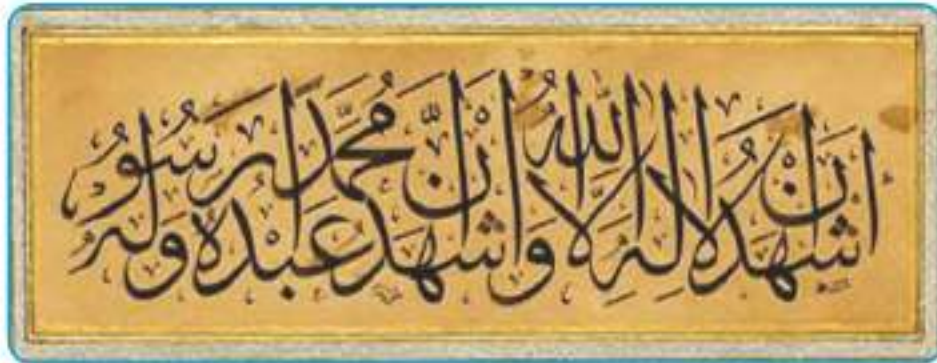 أَشْهَدُ أَنْ لَا إِلٰهَ إِلَّا اللهُ وَأَشْهَدُ أَنَّ مُحَمَّدًا عَبْدُهُ وَرَسُولُهُ